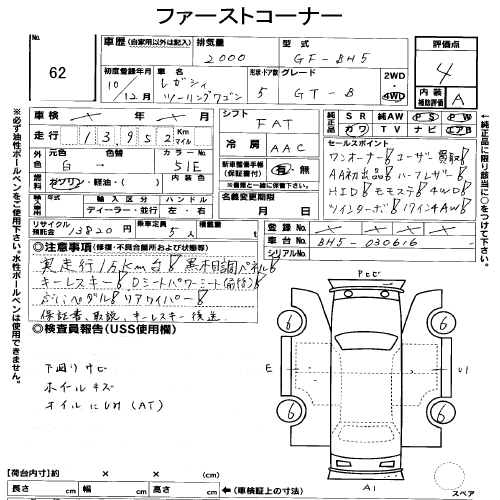 ファーストコーナー
No. 62
車歴 (自家用以外は記入)
排気量 2000
型式 GF-BH5
評価点 4
初度登録年月 10/12月
車名 レガシィ ツーリングワゴン
形状・ドア数 5
グレード GT-B
2WD・4WD
内装補助評価 A
車検 × 年 × 月
シフト FAT
純正品 SR 純AW PS PW
カワ TV ナビ エアB
走行 13,952 Km マイル
冷房 AAC
セールスポイント
外色 元色 白 色替 カラーNo. 51E
新車整備手帳(保証書付) 有・無
ワンオーナー! ユーザー買取!
AA初出品! ハーフレザー!
燃料 ガソリン・軽油・( )
名義変更期限 月 日
HID! モモステ! 4WD!
ツインターボ! 17インチAW!
輸入車用 輸入区分 ディーラー・並行 ハンドル 左・右
リサイクル預託金 13820円
乗車定員 5人
積載量 t
登録No. ×
車台No. BH5-030616
シリアルNo.
◎注意事項 (修復・不具合箇所および状態)
実走行1.5万km台! 黒木目調パネル!
キーレスキー! Dシートパワーシート
ペダル! リアワイパー!
保証書、取説、キーレスキー後送
◎検査員報告(USS使用欄)
下廻りサビ
ホイルキズ
オイルにじみ(AT)
E
U1
A1
6
6
6
6
スペア
【荷台内寸】約 × × (cm)
長さ cm 幅 cm 高さ cm ←(車検証上の寸法)
※必ず油性ボールペンをご使用下さい。水性ボールペンは使用できません。
※純正品に限り該当に○をつけて下さい。